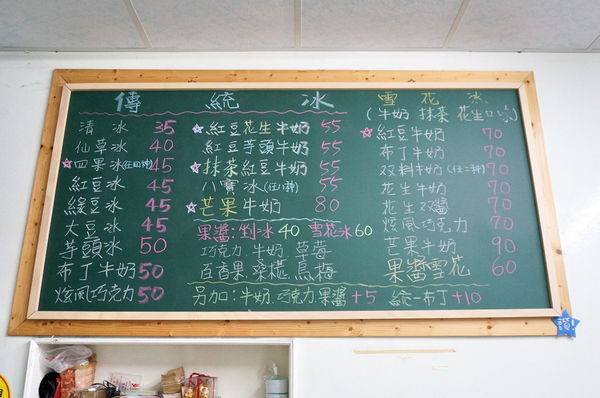 傳統冰
清冰 35
仙草冰 40
四果冰(任四種) 45
紅豆冰 45
綠豆冰 45
大豆冰 45
芋頭冰 50
布丁牛奶 50
炫風巧克力 50
紅豆花生牛奶 55
紅豆芋頭牛奶 55
抹茶紅豆牛奶 55
八寶冰(任八種) 55
芒果牛奶 80
果醬:剉冰40 雪花冰60
巧克力.牛奶.草莓
百香果.桑椹.烏梅
另加:牛奶.巧克力果醬+5 統一布丁+10
雪花冰
(牛奶 抹茶 花生口味)
紅豆牛奶 70
布丁牛奶 70
双料牛奶(任二種) 70
花生牛奶 70
花生双醬 70
炫風巧克力 70
芒果牛奶 90
果醬雪花 60
讚!